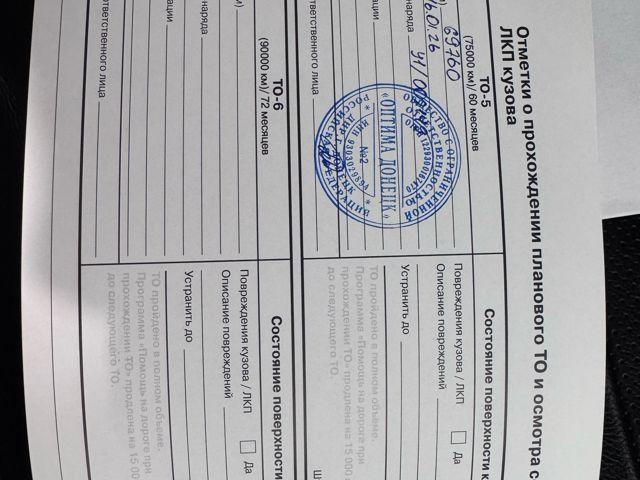 Отметки о прохождении планового ТО и осмотра с
ЛКП кузова
ТО-5
(75000 км)/ 60 месяцев
69760
наряда
ации
тветственного лица
ОБЩЕСТВО С ОГРАНИЧЕННОЙ
ОТВЕТСТВЕННОСТЬЮ
«ОПТИМА ДОНЕЦК»
№2
РОССИЙСКАЯ ФЕДЕРАЦИЯ
Состояние поверхности к
Повреждения кузова / ЛКП Да
Описание повреждений
Устранить до
ТО пройдено в полном объеме.
Программа «Помощь на дороге при
прохождении ТО» продлена на 15 000
до следующего ТО.
ТО-6
(90000 км)/ 72 месяцев
м)
наряда
ации
тветственного лица
Состояние поверхности
Повреждения кузова / ЛКП Да
Описание повреждений
Устранить до
ТО пройдено в полном объеме.
Программа «Помощь на дороге при
прохождении ТО» продлена на 15 00
до следующего ТО.